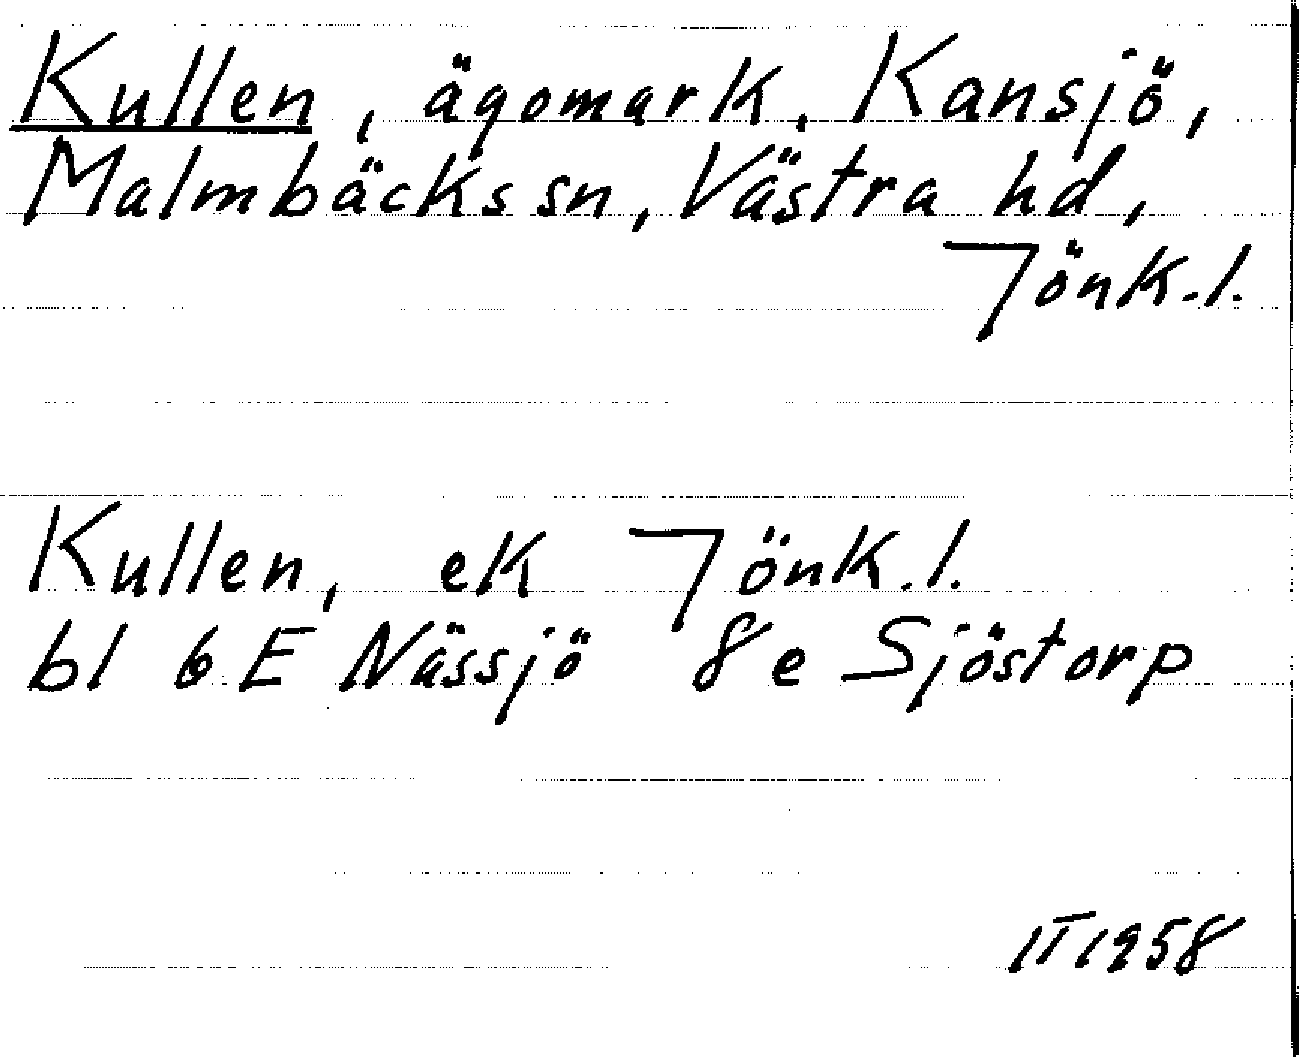 Kullen, ägomark, Kansjö,
Malmbäcks sn, Västra hd,
Jönk.l.
Kullen, ek Jönk.l.
bl 6 E Nässjö 8e Sjöstorp
IT 1958